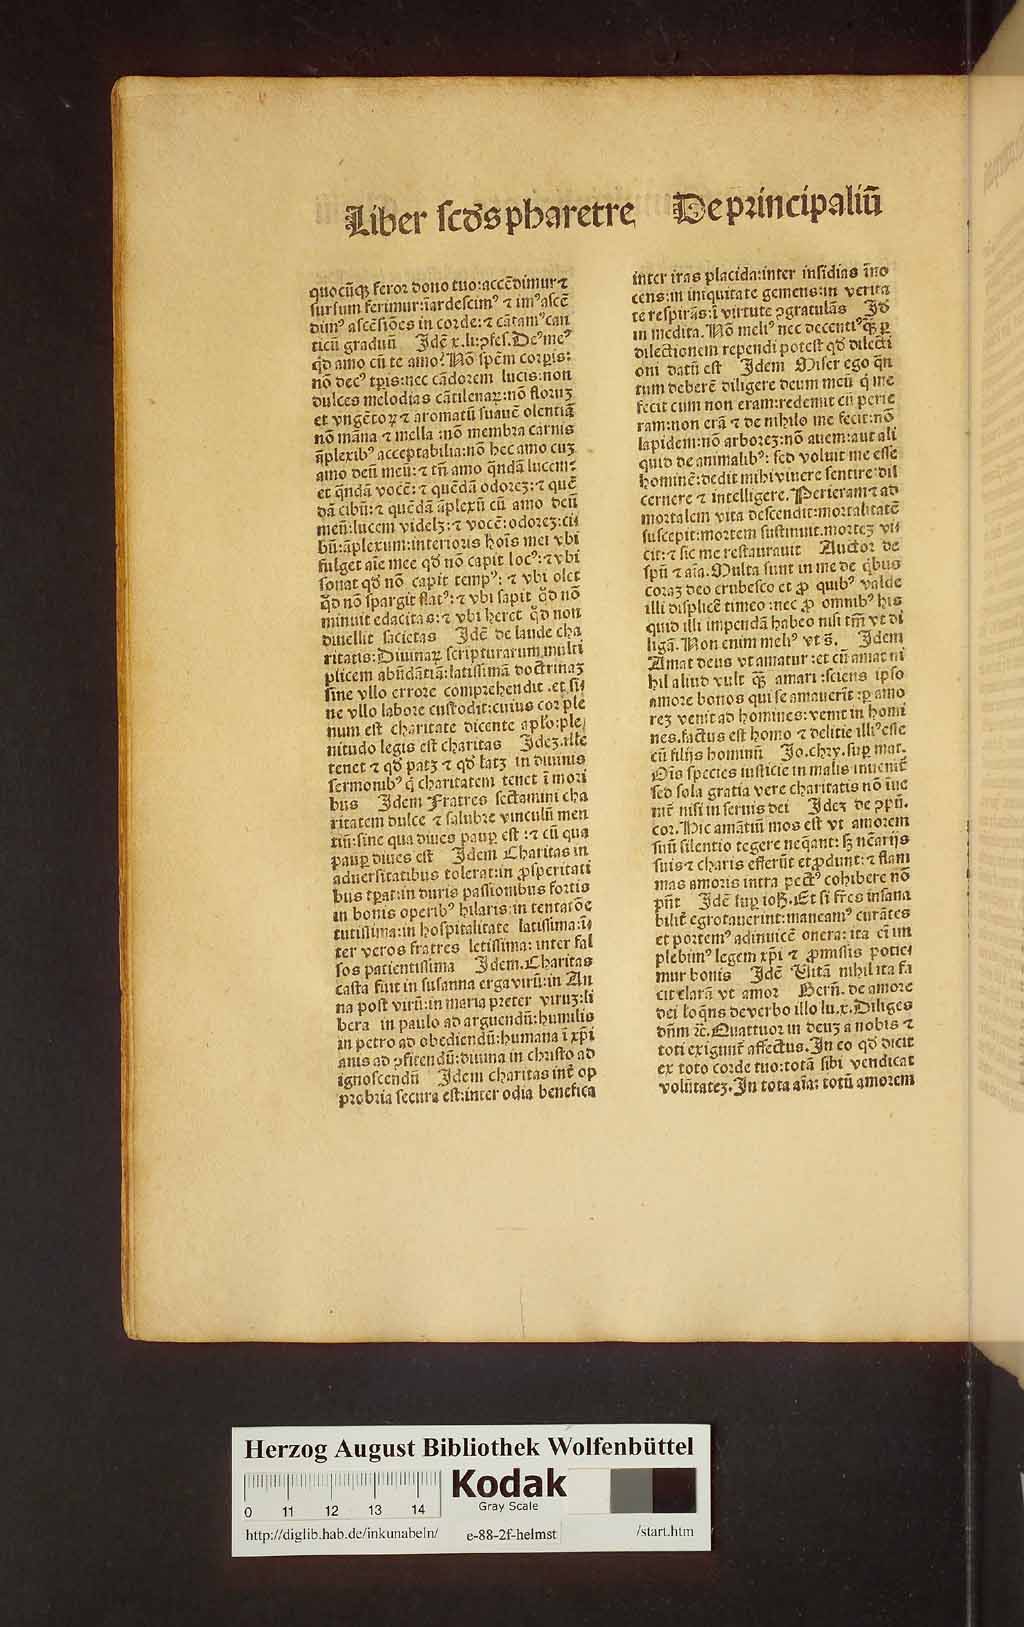 Liber scðs pharetre De principaliũ
quocũqꝫ feror dono tuo:accẽdimur ⁊
sursum ferimur:ĩardescimꝰ ⁊ imꝰ ascẽ
dimꝰ ascẽsiões in corde:⁊ cãtamꝰ can
ticũ graduũ Idẽ x.li:ꝯfes.Deꝰ meꝰ
qd amo cũ te amo? Nõ spẽm corꝑis:
nõ decꝰ tꝑis:nec cãdorem lucis:non
dulces melodias cãtilenaꝝ:nõ floruꝫ
et vngẽtoꝝ ⁊ aromatũ suauẽ olentiã
nõ mãna ⁊ mella :nõ membra carnis
ãplexibꝰ acceptabilia:nõ hec amo cuꝫ
amo deũ meũ:⁊ tñ amo qndã lucem:
et qndã vocẽ:⁊ quẽdã odoreꝫ:⁊ quẽ
dã cibũ:⁊ quẽdã ãplexũ cũ amo deũ
meũ:lucem videlꝫ:⁊ vocẽ:odoreꝫ:ci
bũ:ãplexum:interioris hoĩs mei vbi
fulget aĩe mee qd nõ capit locꝰ:⁊ vbi
sonat qd nõ capit tempꝰ:⁊ vbi olet
qd nõ spargit flatꝰ:⁊ vbi sapit qd nõ
minuit edacitas:⁊ vbi heret qd non
diuellit sacietas Idẽ de laude cha
ritatis:Diuinaꝝ scripturarum multi
plicem abũdãtiã:latissimã doctrinaꝫ
sine vllo errore comprehendit .et si
ne vllo labore custodit:cuius cor ple
num est charitate dicente aplo:ple
nitudo legis est charitas Ideꝫ.ille
tenet ⁊ qd patꝫ ⁊ qd latꝫ in diuinis
sermonibꝰ q charitatem tenet ĩ mori
bus Idem Fratres sectamini cha
ritatem dulce ⁊ salubre vinculũ men
tiũ:sine qua diues pauꝑ est :⁊ cũ qua
pauꝑ diues est Idem Charitas in
aduersitatibus tolerat:in ꝓsperitati
bus tꝑat:in duris passionibus fortis
in bonis operibꝰ hilaris:in tentatõe
tutissima:in hospitalitate latissima:ĩ
ter veros fratres letissima: inter fal
sos patientissima Idem.Charitas
casta fuit in susanna erga virũ:in An
na post virũ:in maria preter viruꝫ:li
bera in paulo ad arguendũ:humilis
in petro ad obediendũ:humana ĩ xp̃i
anis ad ꝯfitendũ:diuina in christo ad
ignoscendũ Idem charitas inẽt op
probria secura est:inter odia benefica
inter iras placida:inter insidias ĩno
cens:in iniquitate gemens:in verita
te respirãs:ĩ virtute ꝯgratulãs Id
in medita.Nõ meliꝰ nec decentiꝰ qꝫ ꝑ
dilectionem rependi potest qd dilecti
oni datũ est Idem Miser ego qñ
tum deberẽ diligere deum meũ q me
fecit cum non eram:redemit cũ perie
ram:non erã ⁊ de nihilo me fecit:nõ
lapidem:nõ arboreꝫ:nõ auem:aut ali
quid de animalibꝰ: sed voluit me esse
hominẽ:dedit mihi viuere sentire dis
cernere ⁊ intelligere.Perieram ⁊ ad
mortalem vita descendit:mortalitatẽ
suscepit:mortem sustinuit.morteꝫ vi
cit:⁊ sic me restaurauit Auctor de
spũ ⁊ aĩa.Multa sunt in me de qbus
coraꝫ deo erubesco et ꝓ quibꝰ valde
illi displicẽ timeo :nec ꝓ omnibꝰ his
quid illi impendã habeo nisi tm̃ vt di
ligã.Non enim meliꝰ vt s̃. Idem
Amat deus vt amatur :et cũ amat ni
hil aliud vult qꝫ amari :sciens ipso
amore bonos qui se amauerĩt :ꝑ amo
reꝫ venit ad homines:venit in homi
nes.factus est homo ⁊ delitie illiꝰ esse
cũ filijs hominũ Jo.chry.suꝑ mat.
Ois species iusticie in malis inuenit̃
sed sola gratia vere charitatis nõ ĩue
nit̃ nisi in seruis dei Ideꝫ de ꝯpũ.
cor.Hic amãtiũ mos est vt amorem
suũ silentio tegere neqant: sꝫ nc̃arijs
suis ⁊ charis efferũt et ꝓdunt:⁊ flam
mas amoris intra pectꝰ cohibere nõ
pñt Idẽ suꝑ ioh.Et si fr̃es insana
bilit̃ egrotauerint:maneamꝰ curãtes
et portemꝰ adinuicẽ onera:ita em̃ im
plebimꝰ legem xp̃i ⁊ ꝓmissis potie
mur bonis Idẽ Vitã nihil ita fa
cit clarã vt amor Berñ. de amore
dei loqns de verbo illo lu.x.Diliges
dñm ⁊c̃.Quattuor in deuꝫ a nobis ⁊
toti exigunt̃ affectus.In eo qd dicit
ex toto corde tuo:totã sibi vendicat
volũtateꝫ.In tota aĩa: totũ amorem
Herzog August Bibliothek Wolfenbüttel
Kodak
Gray Scale
0 11 12 13 14
http://diglib.hab.de/inkunabeln/ e-88-2f-helmst /start.htm